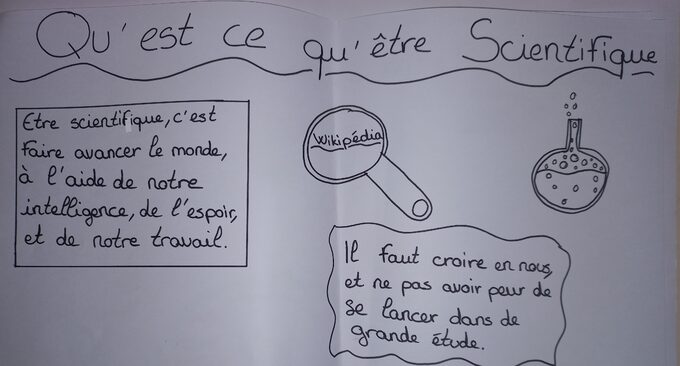 Qu'est ce qu'être Scientifique
Etre scientifique, c'est
faire avancer le monde,
à l'aide de notre
intelligence, de l'espoir,
et de notre travail.
Wikipédia
Il faut croire en nous,
et ne pas avoir peur de
se lancer dans de
grande étude.